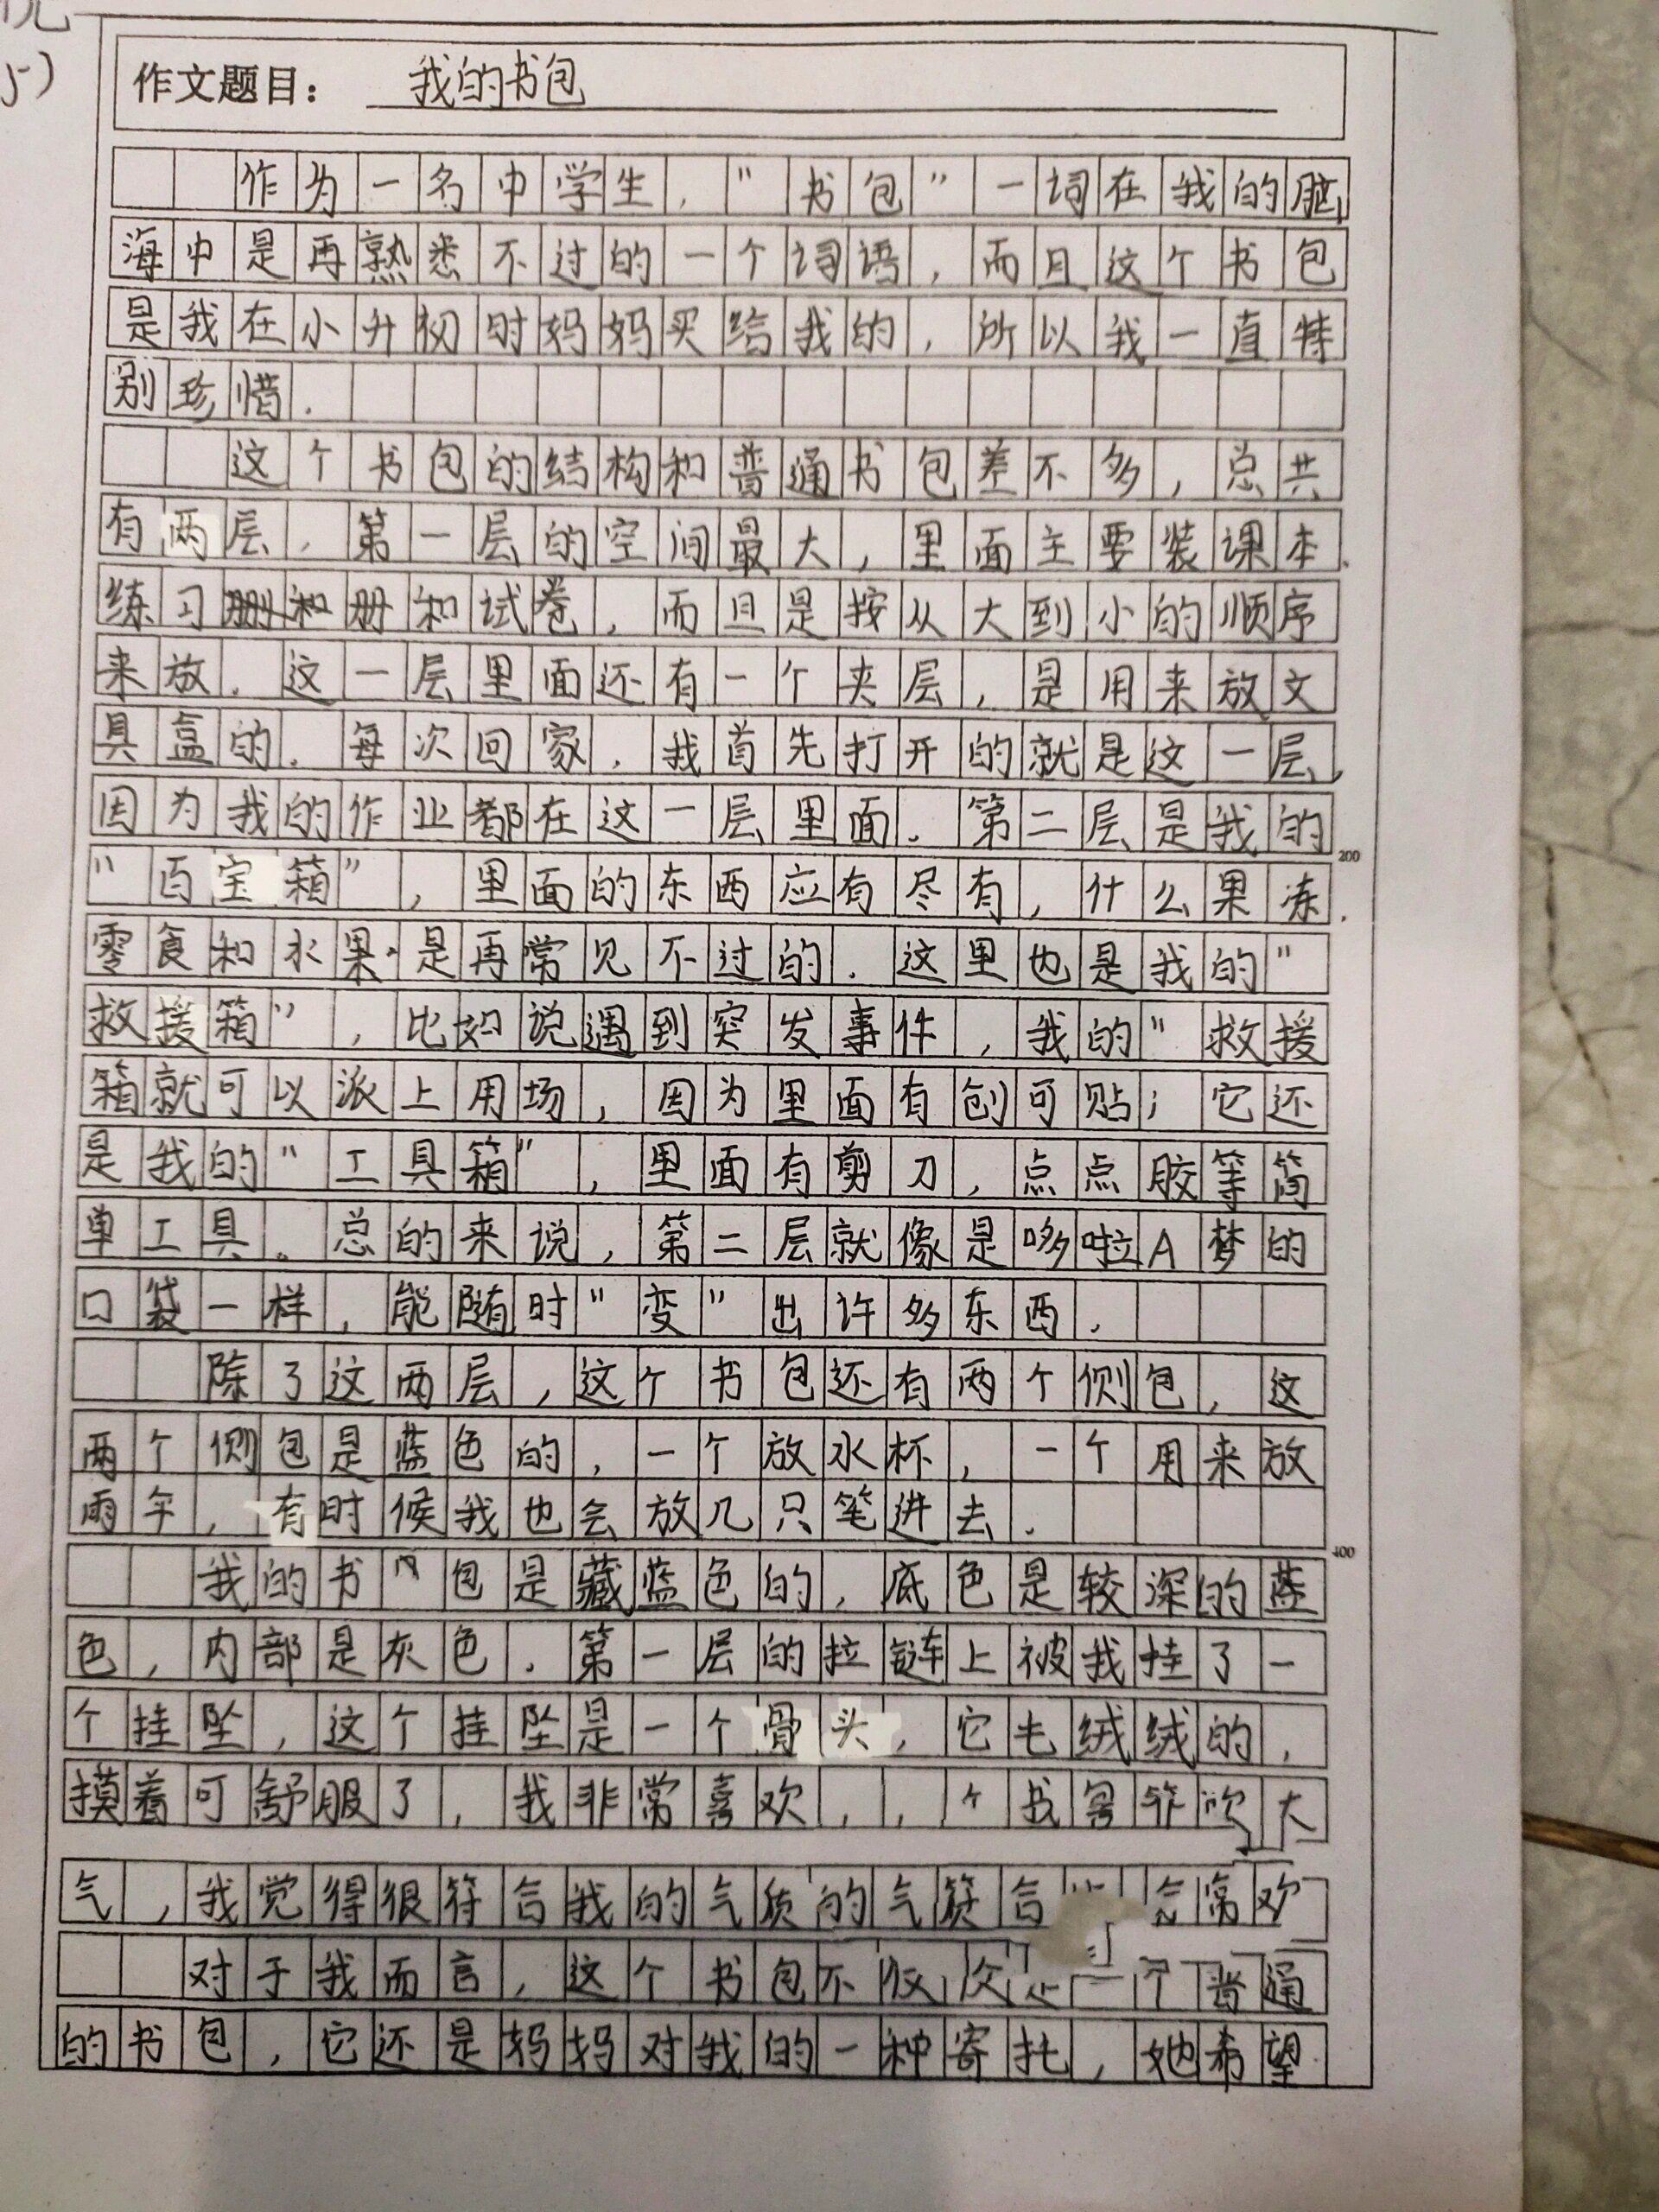 作文题目：我的书包
作为一名中学生，“书包”一词在我的脑
海中是再熟悉不过的一个词语，而且这个书包
是我在小升初时妈妈买给我的，所以我一直特
别珍惜．
这个书包的结构和普通书包差不多，总共
有两层，第一层的空间最大，里面主要装课本．
练习册和册和试卷，而且是按从大到小的顺序
来放．这一层里面还有一个夹层，是用来放文
具盒的．每次回家．我首先打开的就是这一层，
因为我的作业都在这一层里面．第二层是我的
200
“百宝箱”，里面的东西应有尽有，什么果冻．
零食和水果．是再常见不过的．这里也是我的“
救援箱”，比如说遇到突发事件，我的“救援
箱就可以派上用场，因为里面有创可贴；它还
是我的“工具箱”，里面有剪刀，点点胶等简
单工具。总的来说，第二层就像是哆啦A梦的
口袋一样，能随时“变”出许多东西．
除了这两层，这个书包还有两个侧包，这
两个侧包是蓝色的，一个放水杯，一个用来放
雨伞，有时候我也会放几只笔进去．
400
我的书内包是藏蓝色的，底色是较深的蓝
色，内部是灰色．第一层的拉链上被我挂了一
个挂坠，这个挂坠是一个骨头，它毛绒绒的，
摸着可舒服了，我非常喜欢，，个书大
气，我觉得很符合我的气质的气符合常欢
对于我而言，这个书包不仅一个普通
的书包，它还是妈妈对我的一种寄托，她希望